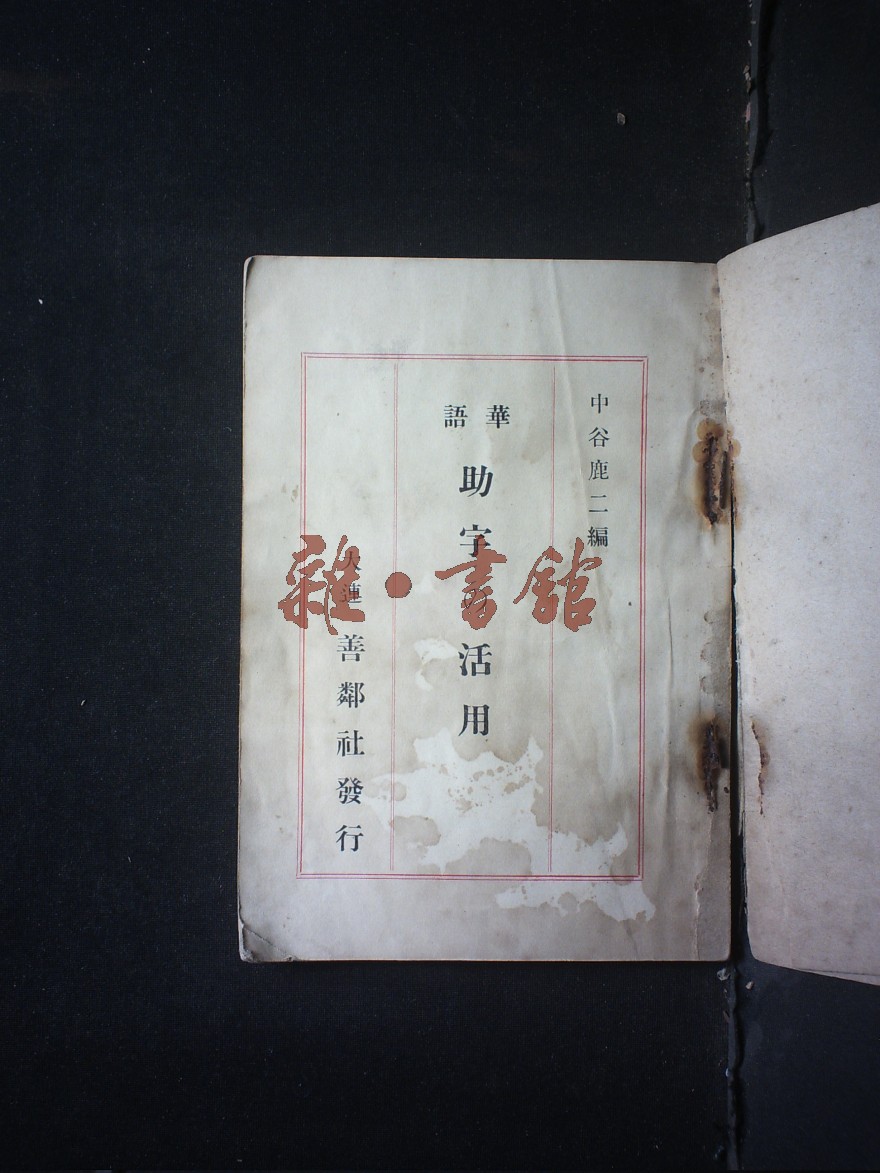 中谷鹿二編
華語
助字の活用
大連 善鄰社發行
雜·書館